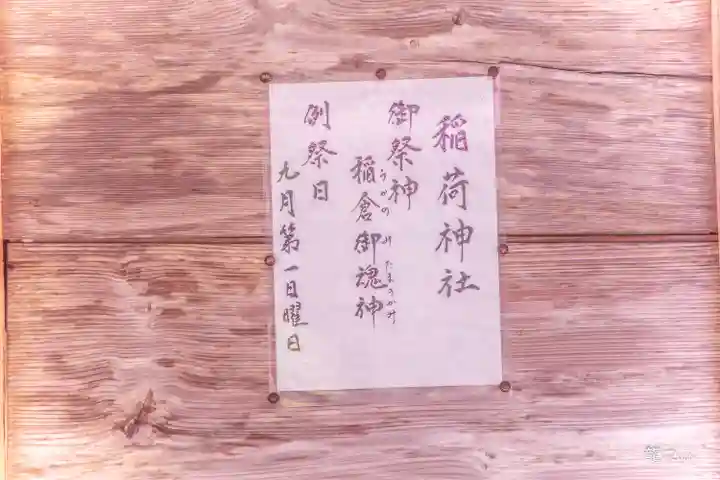 稲荷神社
御祭神
稲倉御魂神
うかの みたまのかみ
例祭日
九月第一日曜日